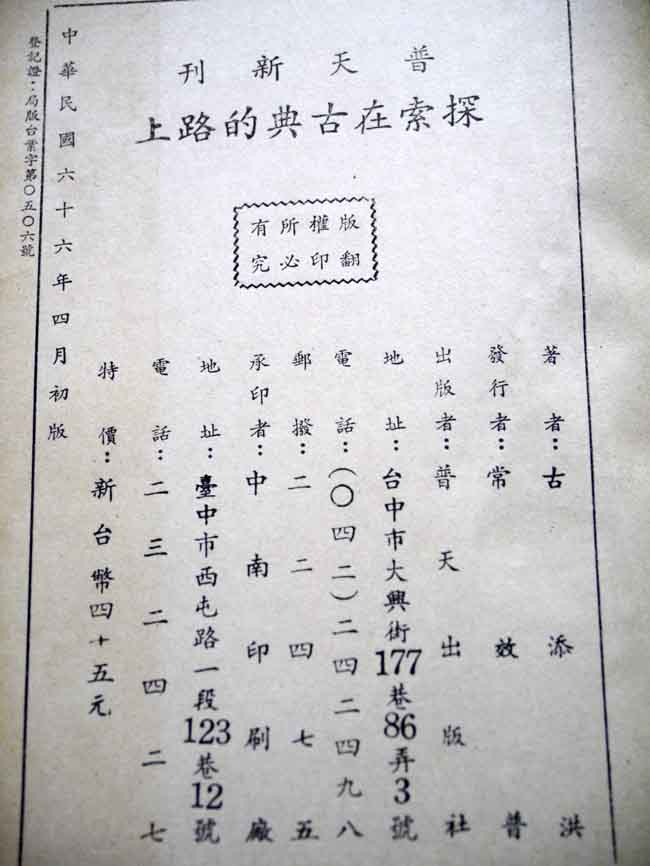 普天新刊
探索在古典的路上
版權所有
翻印必究
著者：古添洪
發行者：常效普
出版者：普天出版社
地址：台中市大興街177巷86弄3號
電話：（〇四二）二四二四九八
郵撥：二二四七五
承印者：中南印刷廠
地址：臺中市西屯路一段123巷12號
電話：二三二四二七
特價：新台幣四十五元
中華民國六十六年四月初版
登記證：局版台業字第〇五〇六號